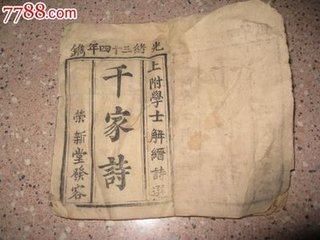 7788.com
光緒三十四年鐫
上附學士解縉詩選
千家詩
榮新堂發客